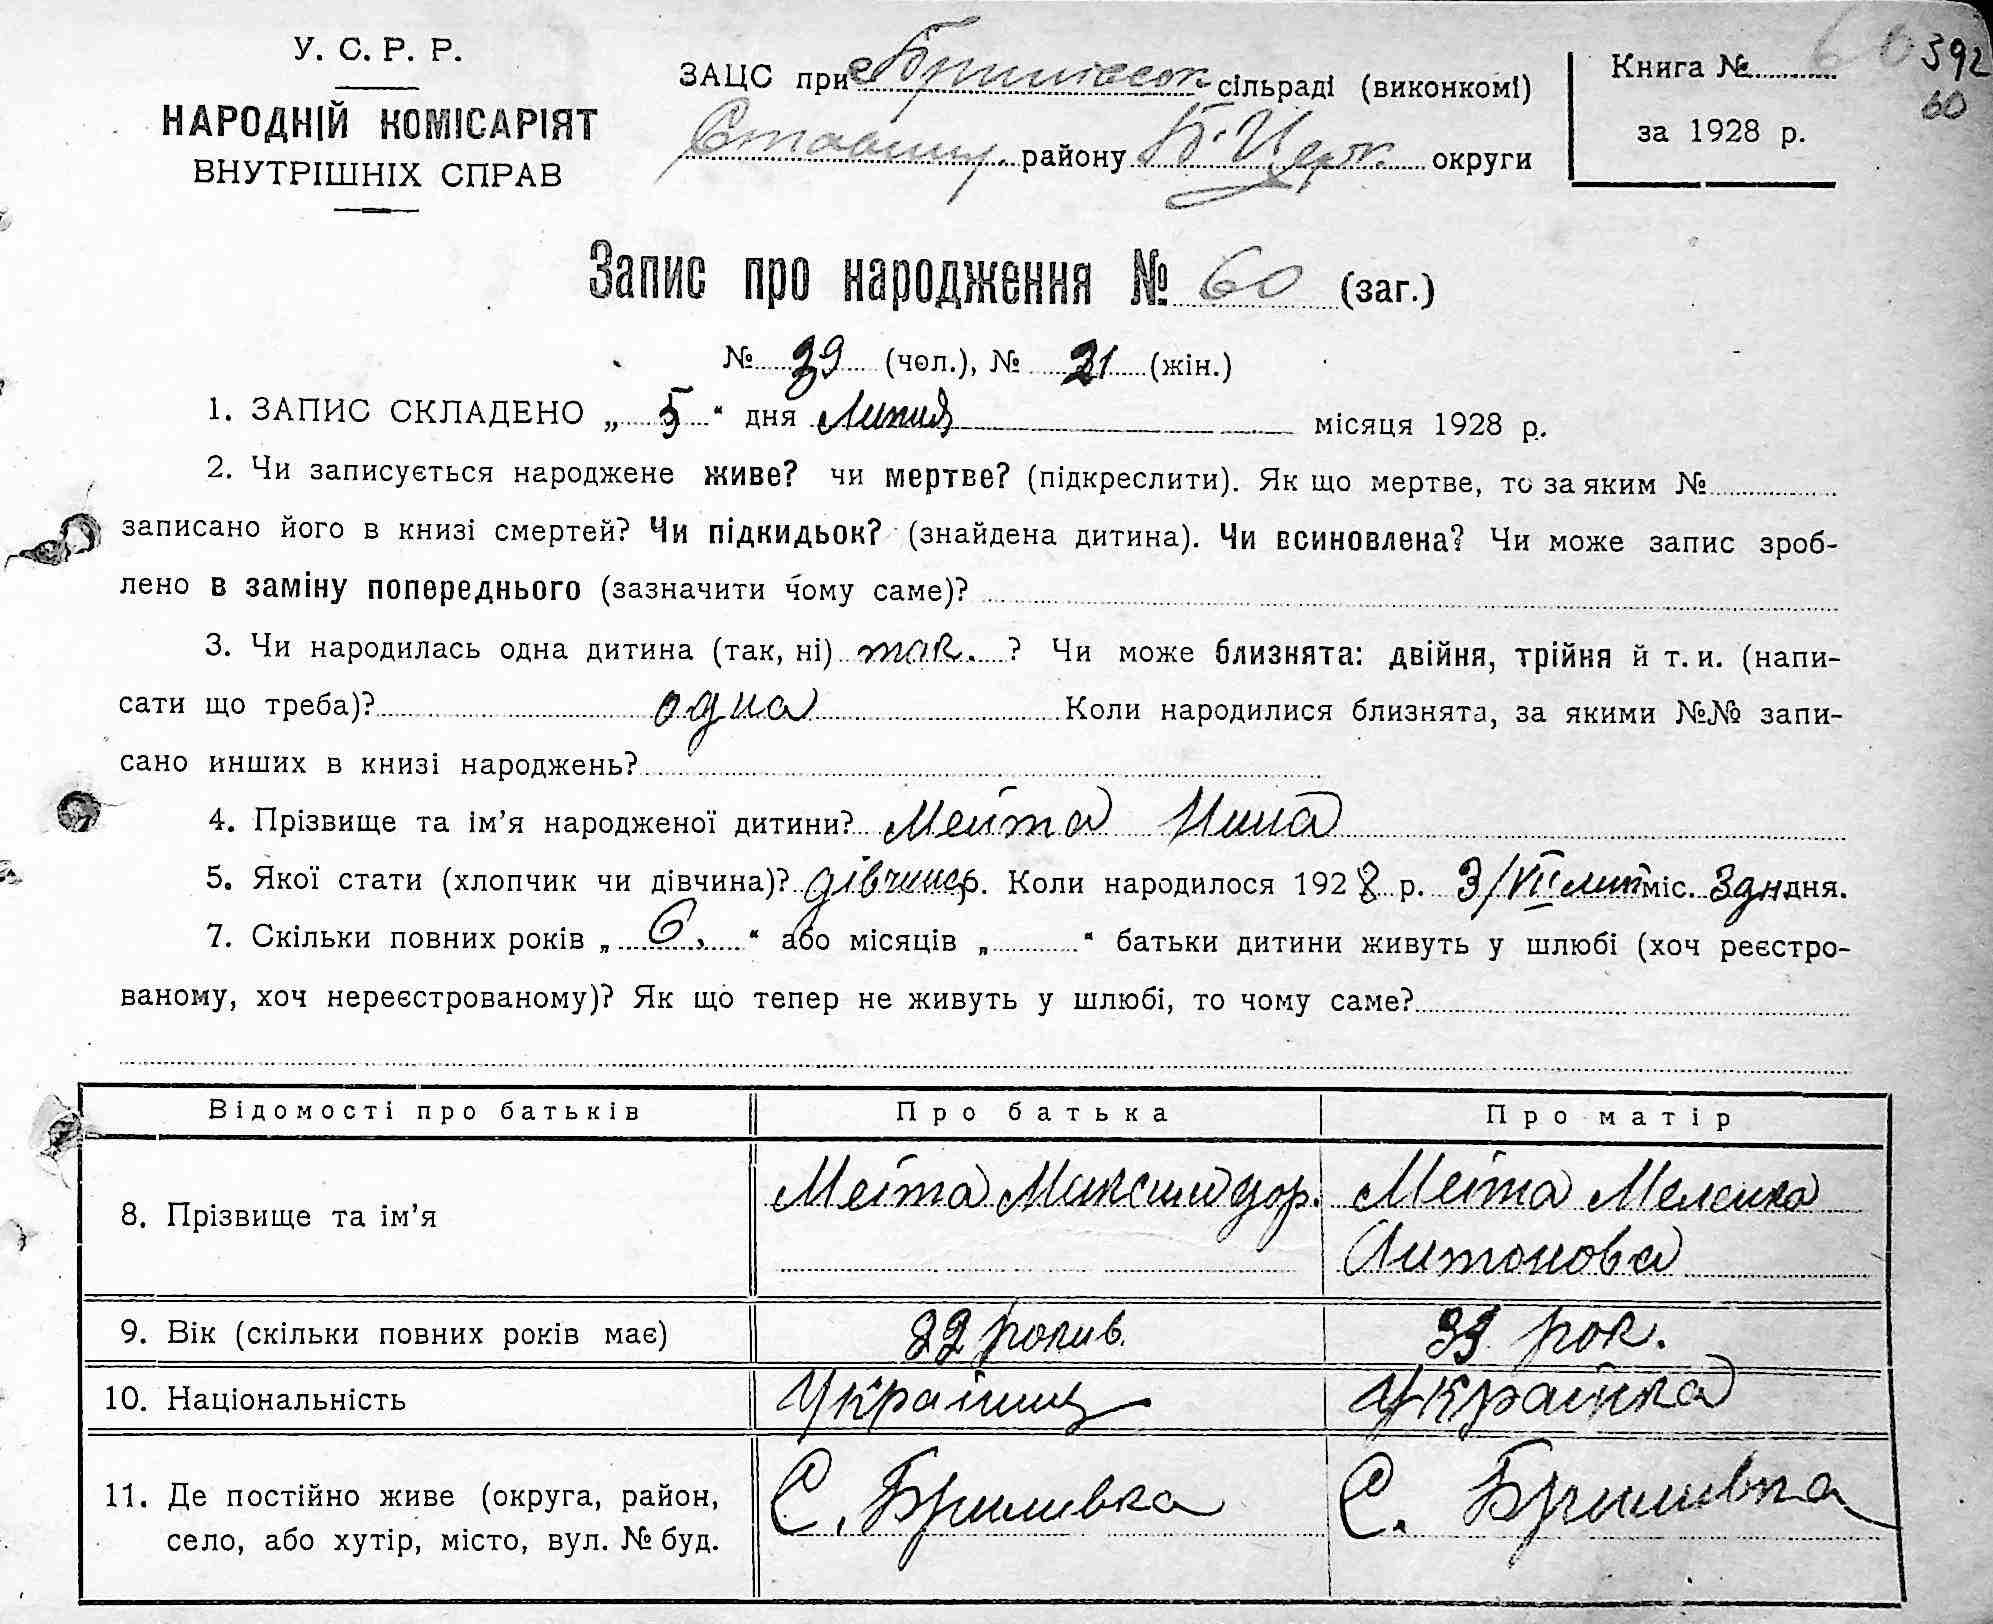 У. С. Р. Р.
НАРОДНІЙ КОМІСАРІЯТ
ВНУТРІШНІХ СПРАВ
ЗАЦС при сільраді (виконкомі)
району Б. Церк. округи
Книга № 60 392
60
за 1928 р.
Запис про народження № 60 (заг.)
№ 39 (чол.), № 21 (жін.)
1. ЗАПИС СКЛАДЕНО „ 5 “ дня Липня місяця 1928 р.
2. Чи записується народжене живе? чи мертве? (підкреслити). Як що мертве, то за яким №
записано його в книзі смертей? Чи підкидьок? (знайдена дитина). Чи всиновлена? Чи може запис зроб-
лено в заміну попереднього (зазначити чому саме)?
3. Чи народилась одна дитина (так, ні) так. ? Чи може близнята: двійня, трійня й т. и. (напи-
сати що треба)? одна Коли народилися близнята, за якими №№ запи-
сано инших в книзі народжень?
4. Прізвище та ім’я народженої дитини? Мейта Нина
5. Якої стати (хлопчик чи дівчина)? дівчина. Коли народилось 1928 р. 3/VII лип міс. 3 дн дня.
7. Скільки повних років „ 6. “ або місяців „ “ батьки дитини живуть у шлюбі (хоч реєстро-
ваному, хоч нереєстрованому)? Як що тепер не живуть у шлюбі, то чому саме?
Відомості про батьків Про батька Про матір
8. Прізвище та ім’я Мейта Максим дор. Мейта Мелашка
Антонова
9. Вік (скільки повних років має) років. рок.
10. Національність Українец Українка
11. Де постійно живе (округа, район, С. Бриливка С. Бриливка
село, або хутір, місто, вул. № буд.